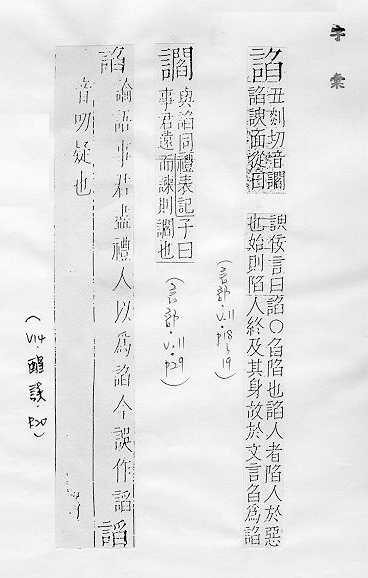 字彙
諂
丑剡切音讇
諂諛面從曰
諛佞言曰諂○臽陷也諂人者陷人於惡
也始則陷人終及其身故於文言臽為諂
(言部.V.11
P18至19)
讇
與諂同禮表記子曰
事君遠而諫則讇也
(言部.V.11
P29)
諂論語事君盡禮人以為諂今誤作謟謟
音叨疑也
(V14.醒誤.P20)